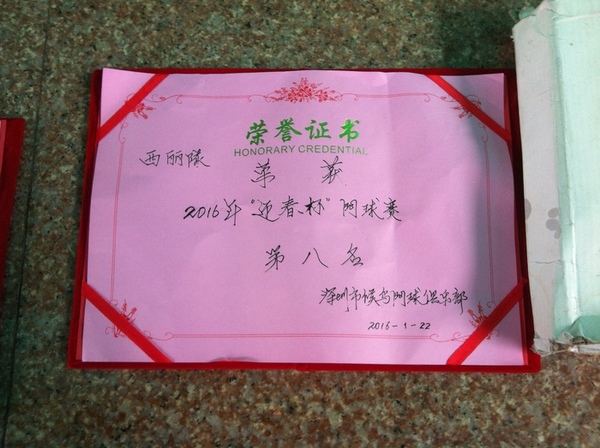 荣誉证书
HONORARY CREDENTIAL
西丽队
荣获
2016年"迎春杯"网球赛
第八名
深圳市候鸟网球俱乐部
2016-1-22